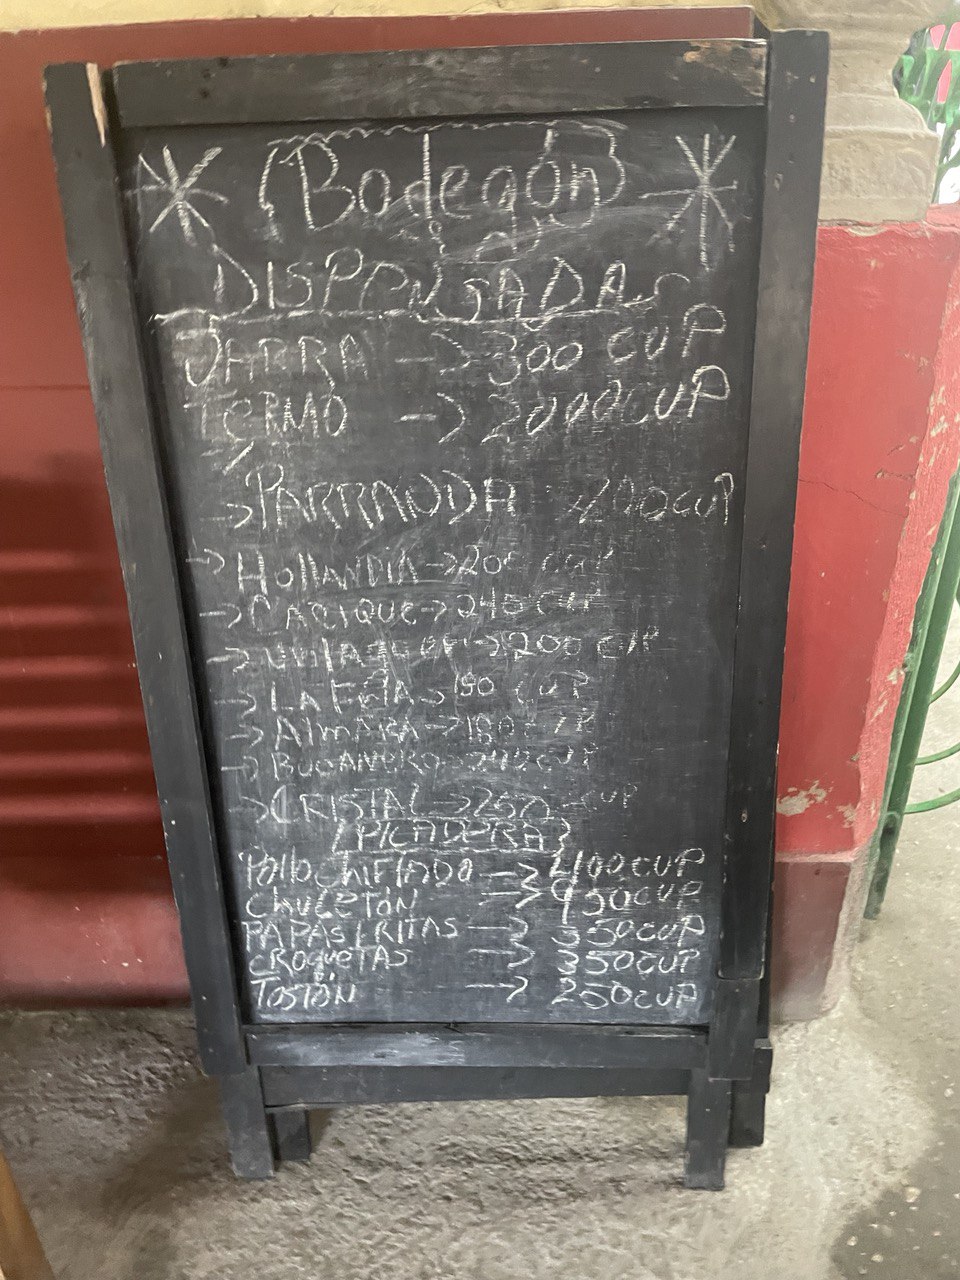 Bodegón
DISPENSADAS
JARRA -> 300 CUP
TERMO -> 2000CUP
-> PARRANDA 200CUP
-> HOllANDIA -> 200 CUP
-> CACIQUE -> 240 CUP
-> -> 200 CUP
-> LA FRÍA -> 180 CUP
-> AlmAzA -> 180 CUP
-> BUCANERO CUP
-> CRISTAL -> CUP
PICADERA
Pollo CHIFlADO -> 400CUP
CHULETÓN -> 950CUP
PAPAS FRITAS -> 350CUP
CROqueTAS -> 350CUP
TosTÓN -> 250CUP